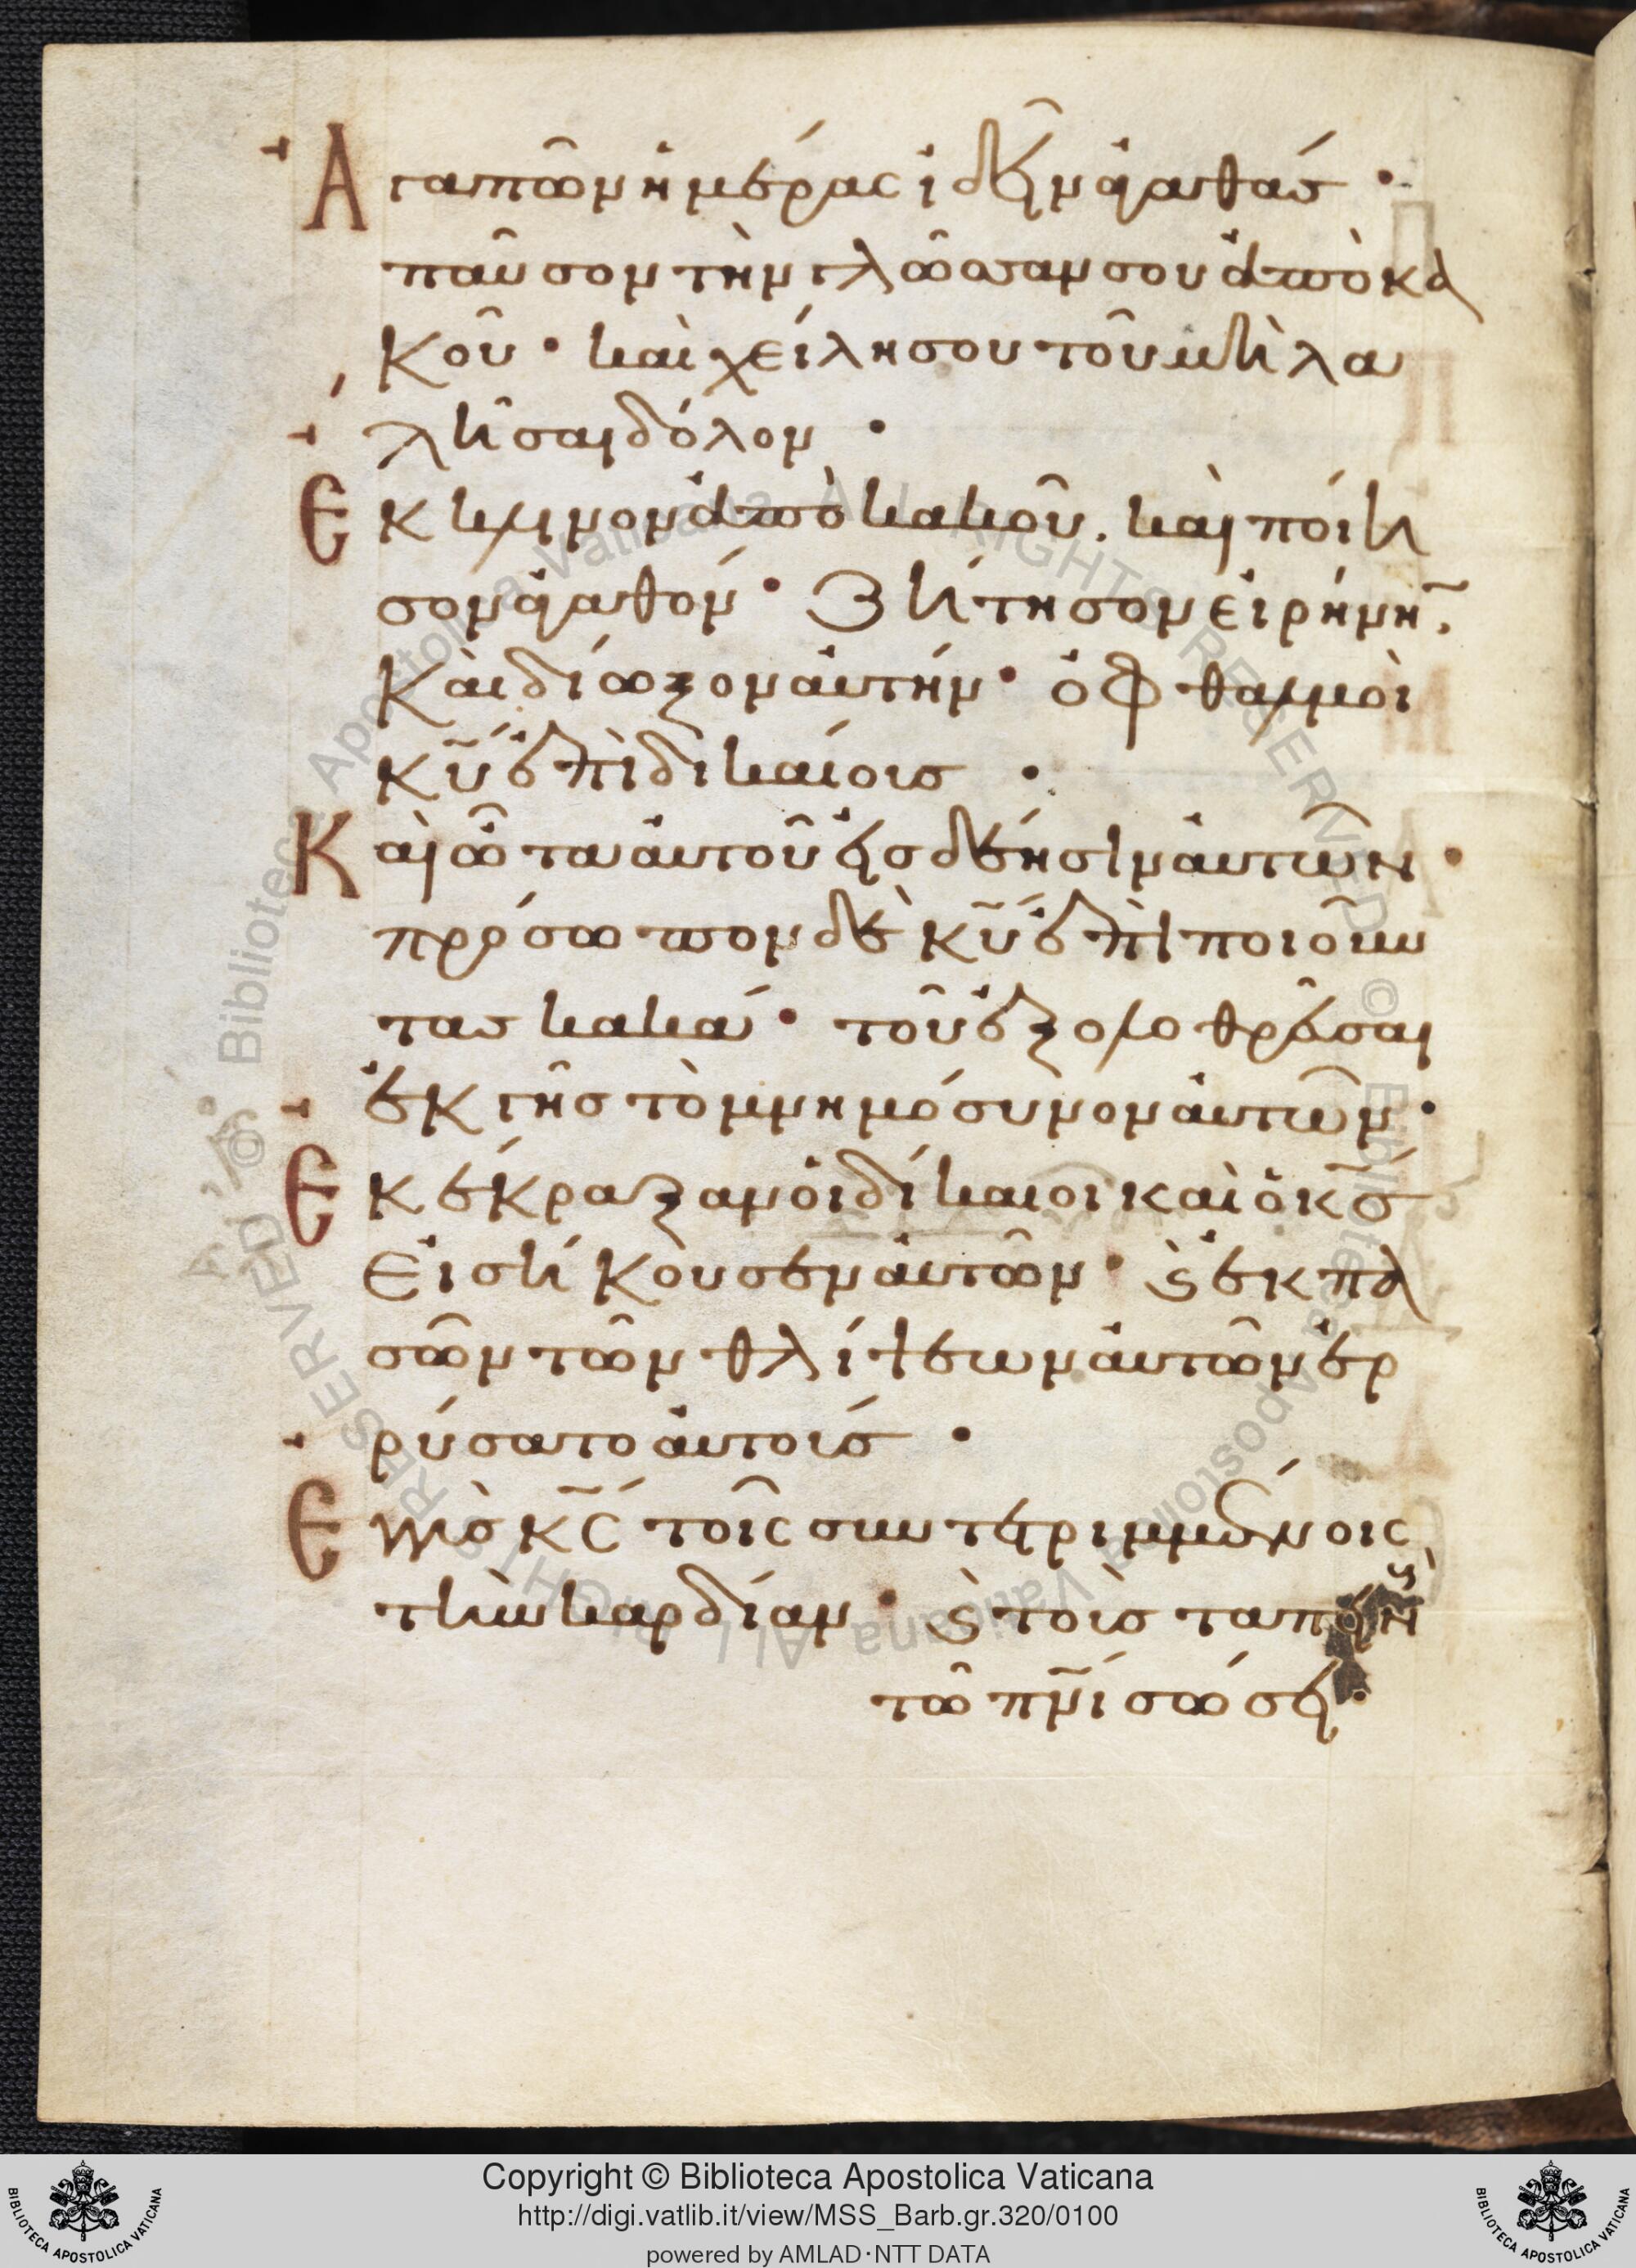 Ἀγαπῶν ἡμέρας ἰδεῖν ἀγαθάς·
παῦσον τὴν γλῶσσαν σου ἀπὸ κα
κοῦ· καὶ χείλη σου τοῦ μὴ λα
λῆσαι δόλον·
Ἔκκλινον ἀπὸ κακοῦ. καὶ ποίη
σον ἀγαθόν· ζήτησον εἰρήνη̅.
καὶ δίωξον αὐτήν· ὀφθαλμοὶ
κ̅υ̅ ἐπὶ δικαίους·
Καὶ ὦτα αὐτοῦ εἰς δέησιν αὐτῶν·
πρόσωπον δὲ κ̅υ̅ ἐπὶ ποιοῦν
τας κακά· τοῦ ἐξολοθρεῦσαι
ἐκ γῆς τὸ μνημόσυνον αὐτῶν·
Ἐκέκραξαν οἱ δίκαιοι καὶ ὁ κ̅ς̅
εἰσήκουσεν αὐτῶν· ϗ ἐκ πα
σῶν τῶν θλίψεων αὐτῶν ἐρ
ρύσατο αὐτούς·
Ἐγγὺς κ̅ς̅ τοῖς συντετριμμένοις
τὴν καρδίαν· ϗ τοὺς ταπειν
τῶ π̅ν̅ι̅ σώσει·
Copyright © Biblioteca Apostolica Vaticana
http://digi.vatlib.it/view/MSS_Barb.gr.320/0100
powered by AMLAD·NTT DATA
BIBLIOTECA APOSTOLICA VATICANA
BIBLIOTECA APOSTOLICA VATICANA